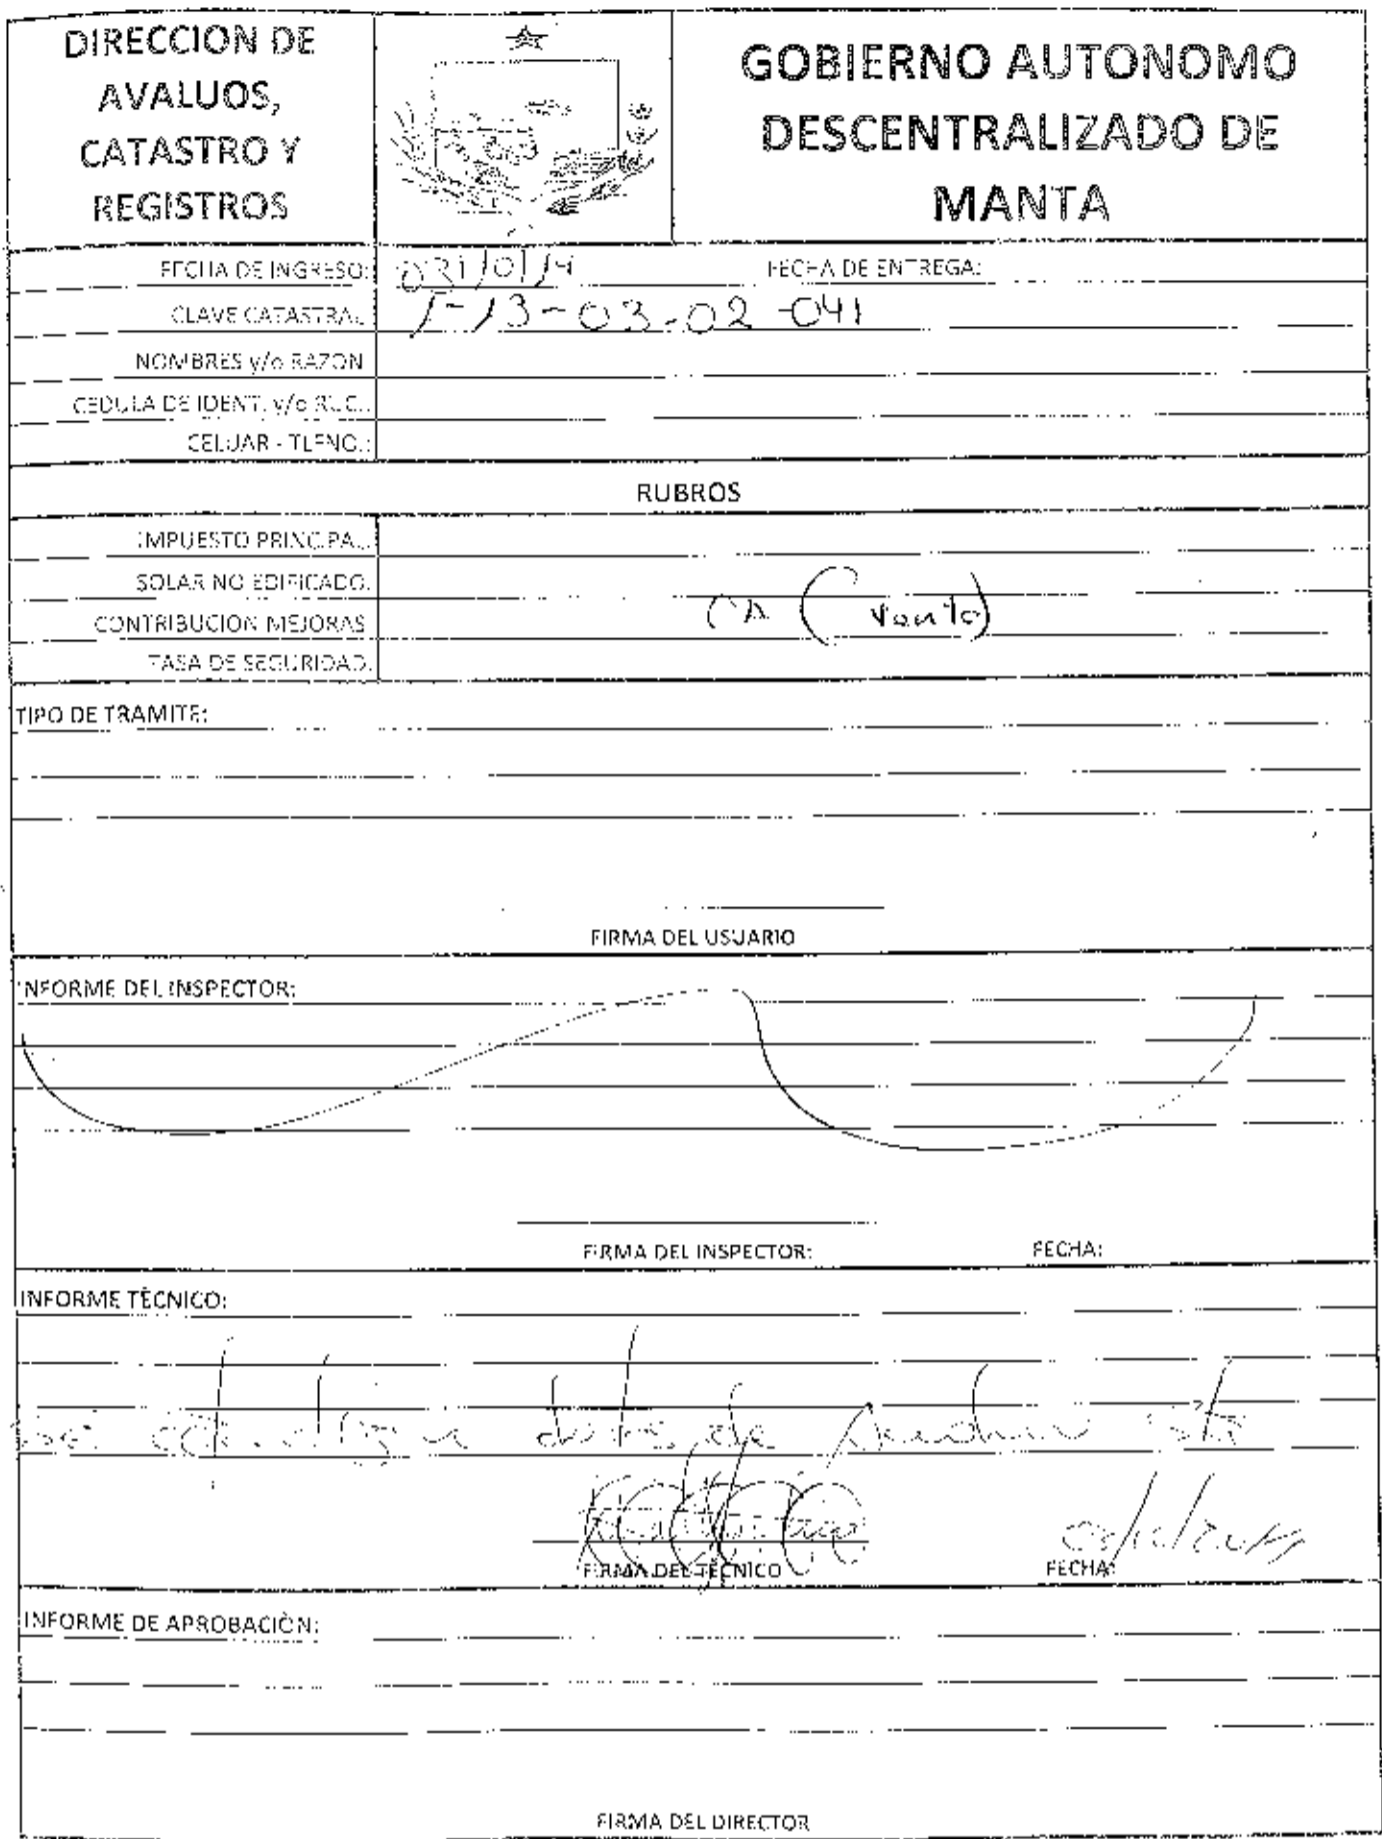 DIRECCION DE
AVALUOS,
CATASTRO Y
REGISTROS
GOBIERNO AUTONOMO
DESCENTRALIZADO DE
MANTA
FECHA DE INGRESO:
FECHA DE ENTREGA:
CLAVE CATASTRAL 1-13-03-02-041
NOMBRES y/o RAZON
CEDULA DE IDENT. y/o RUC.:
CELUAR - TLFNO.:
RUBROS
IMPUESTO PRINCIPAL.
SOLAR NO EDIFICADO.
CONTRIBUCION MEJORAS
TASA DE SEGURIDAD.
TIPO DE TRAMITE:
FIRMA DEL USUARIO
INFORME DEL INSPECTOR:
FIRMA DEL INSPECTOR: FECHA:
INFORME TÉCNICO:
FIRMA DEL TÉCNICO FECHA:
INFORME DE APROBACIÓN:
FIRMA DEL DIRECTOR